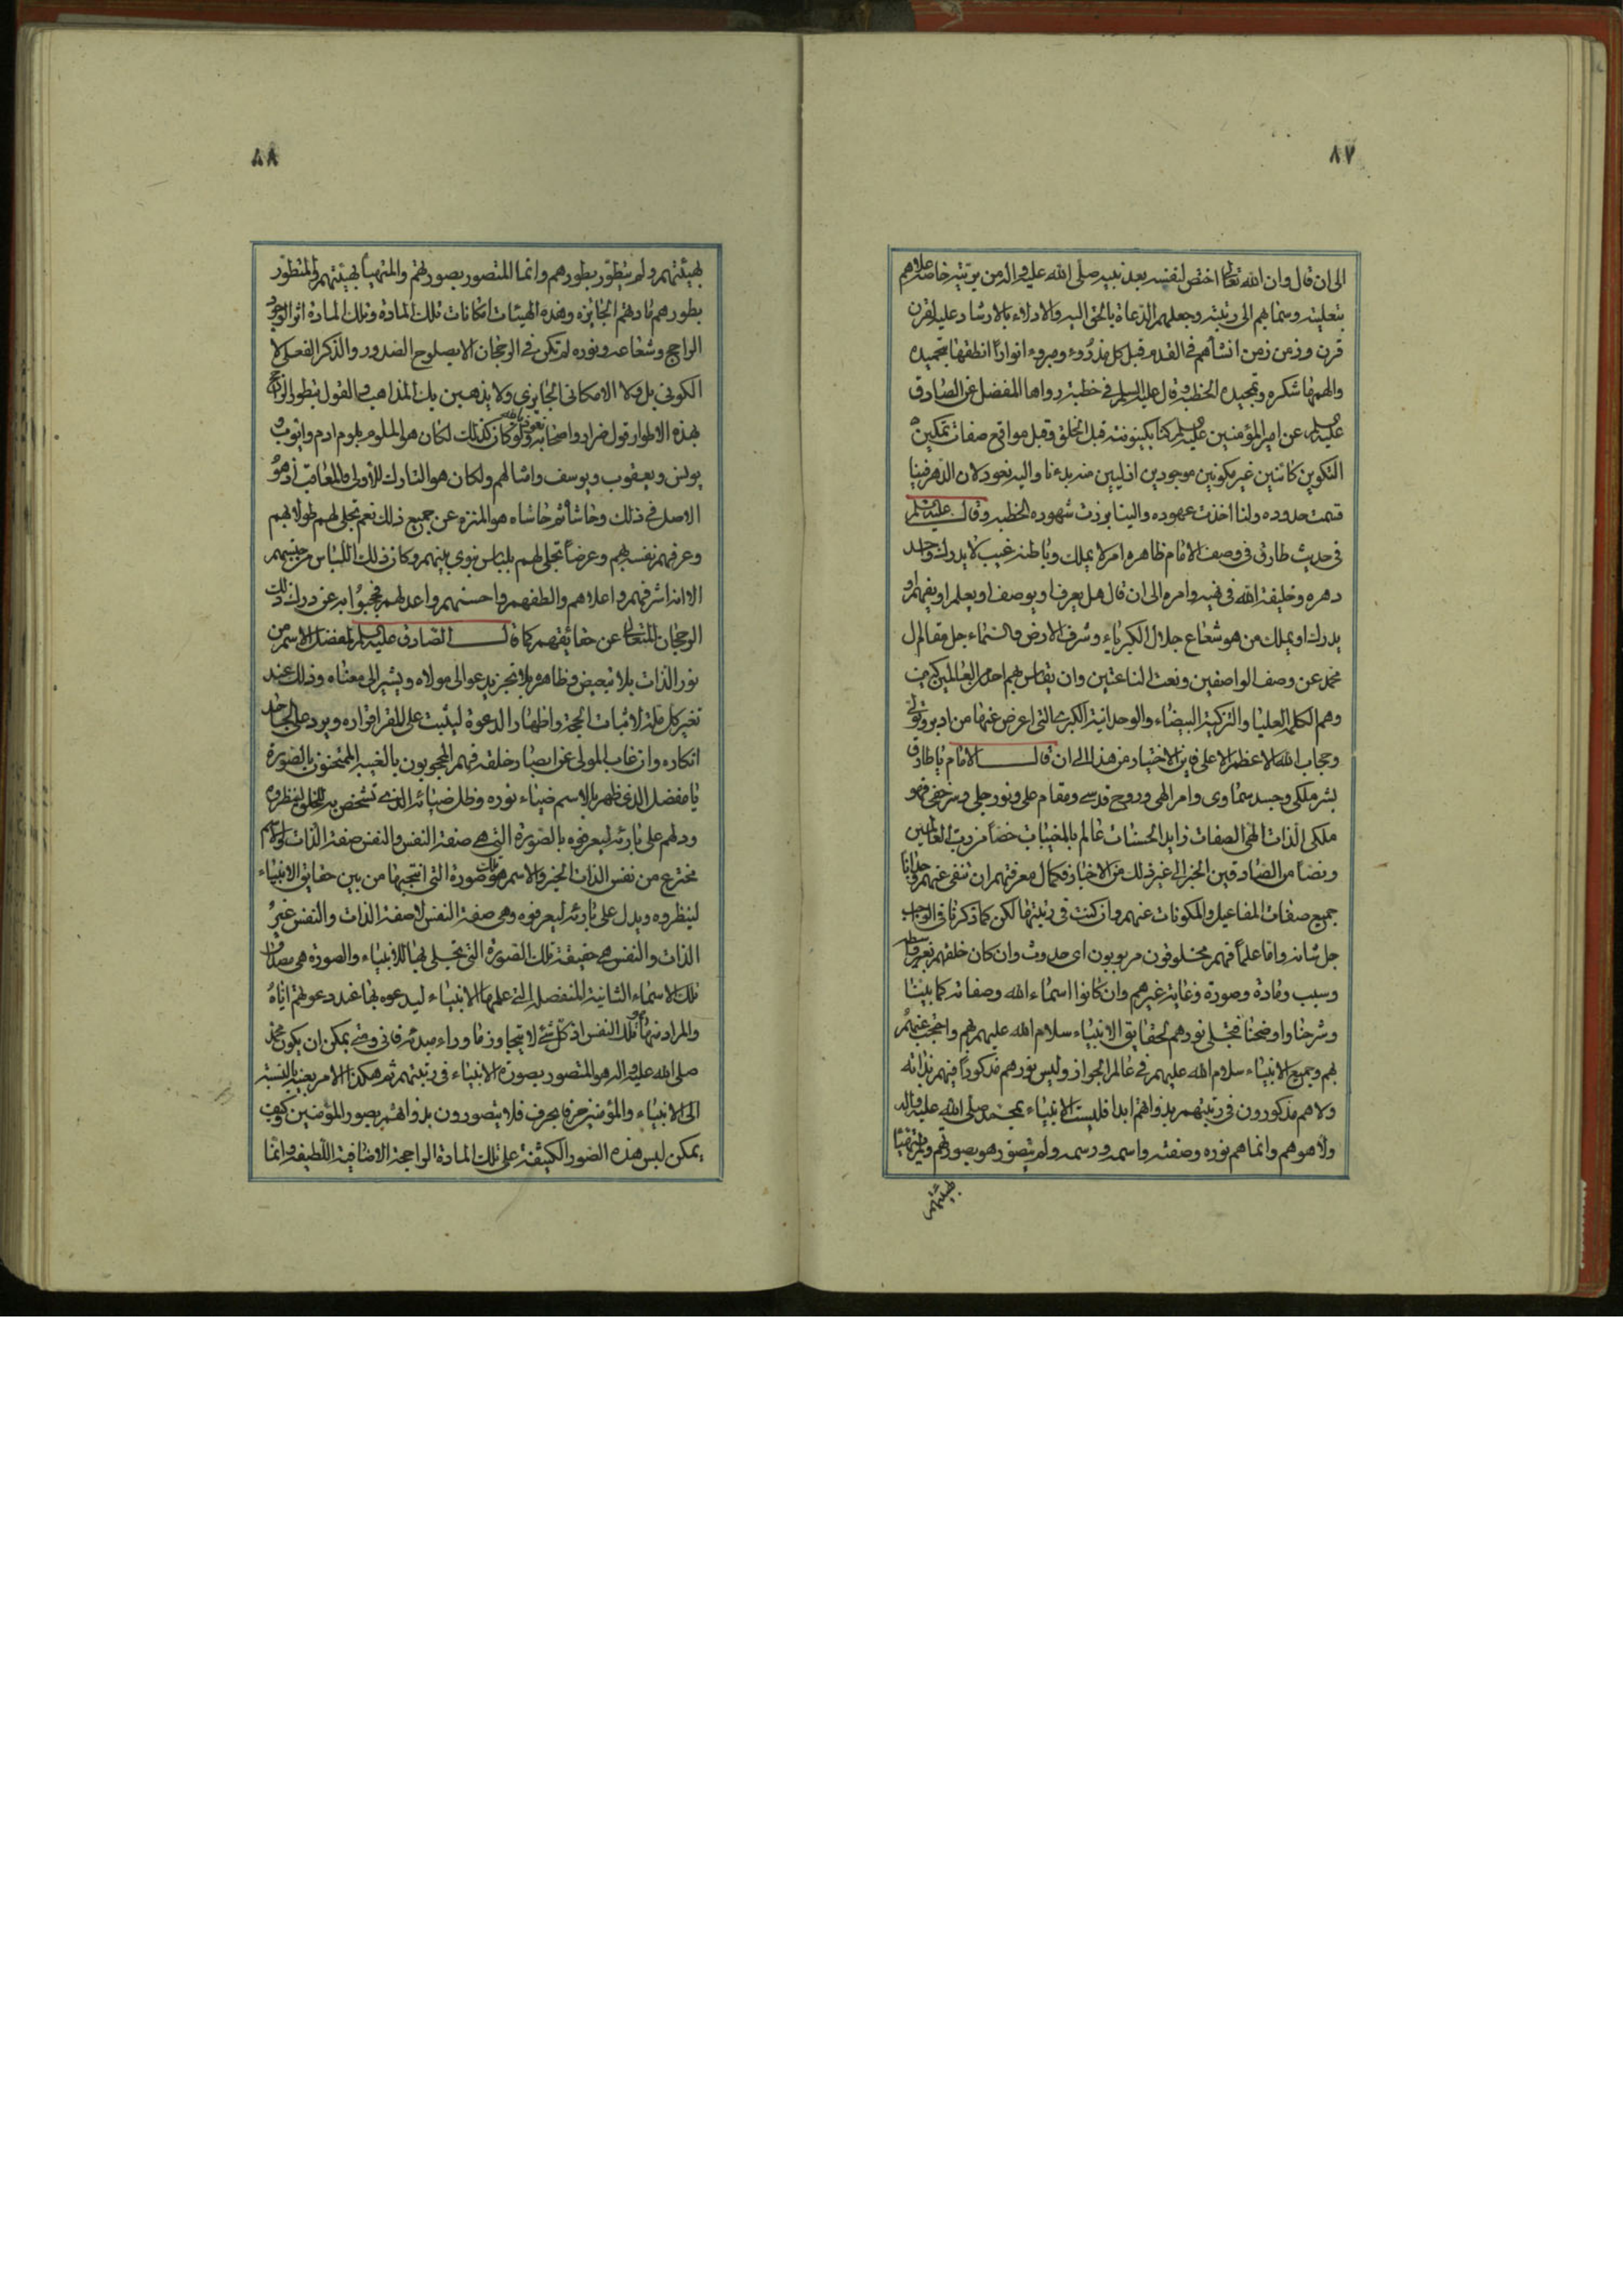 ٨٧
الى ان قال وان الله تعالى اختص لنفسه بعد نبيه صلى الله عليه واله من بريته خاصة علاهم
بتعليته وسماهم الى رتبته وجعلهم الدعاة بالحق اليه والادلاء بالارشاد عليه لقرن
قرن وزمن زمن انشأهم فى القدم قبل كل مذروء ومبروء انوارا انطقها بتحميده
والهمها شكره وتمجيده الخطبة وقال عليه السلم فى خطبة رواها المفضل عن الصادق
عليه السلم عن امير المؤمنين عليه السلم كنا بكينونته قبل الخلق وقبل مواقع صفات تمكين
التكوين كائنين غير مكونين موجودين ازليين منه بدءنا واليه نعود لان الدهر فينا
قسمت حدوده ولنا اخذت عهوده والينا برزت شهوده الخطبه وقال عليه السلم
فى حديث طارق فى وصف الامام ظاهره امر لا يملك وباطنه غيب لا يدرك واحد
دهره وخليفة الله فى نهيه وامره الى ان قال هل يعرف او يوصف او يعلم او يفهم او
يدرك او يملك من هو شعاع جلال الكبرياء وشرف الارض والسماء جل مقام ال
محمد عن وصف الواصفين ونعت الناعتين وان يقاس بهم احد من العالمين كيف
وهم الكلمة العليا والتركية البيضاء والوحدانية الكبرى التى اعرض عنها من ادبر وتولى
وحجاب الله الاعظم الاعلى فاين الاختيار من هذا الى ان قال الامام يا طارق
بشر ملكى وجسد سماوى وامر الهى وروح قدسى ومقام على ونور جلى وسر خفى فهو
ملكى الذات الهى الصفات زايد الحسنات عالم بالمغيبات خصا من رب العالمين
ونصا من الصادقين الخبر الى غير ذلك من الاخبار فكمال معرفتهم ان تنفى عنهم وجدانا
جميع صفات المفاعيل والمكونات عنهم وان كنت فى رتبتها لكن كما ذكرنا فى الواجب
جل شانه واما علما فهم مخلوقون مربوبون اى حدوث وان كان خلقهم بغير واسطه
وسبب ومادة وصورة وغاية غيرهم وان كانوا اسماء الله وصفاته كما بينا
وشرحنا واوضحنا فتجلى نورهم لحقايق الانبياء سلام الله عليهم بهم واحتجب عنهم
بهم وجميع الانبياء سلام الله عليهم فى عالم الجواز وليس نورهم مذكورا فيهم بذاته
ولا هم مذكورون فى رتبتهم بذواتهم ابدا فليست الانبياء بمحمد صلى الله عليه واله
ولا هو هم وانما هم نوره وصفته واسمه ورسمه ولم يتصور هو بصورتهم ولم يتهيأ
بهيئتهم
٨٨
بهيئتهم ولم يتطور بطورهم وانما المتصور بصورتهم والمتهيأ بهيئتهم والمتطور
بطورهم مادتهم الجايزه وهذه الهيئات امكانات تلك المادة وتلك المادة اثر الوجود
الراجح وشعاعه ونوره لم تكن فى الرجحان الا بصلوح الصدور والذكر الفعلى لا
الكونى بل ولا الامكانى الجايزى ولا يذهبن بك المذاهب والقول بتطور الراجح
بهذه الاطوار قول ضرار واصحابه نعوذ بالله ولو كان كذلك لكان هو الملوم بلوم ادم وايوب
يونس ويعقوب ويوسف وامثالهم ولكان هو التارك للاولى والمعاتب اذ هو
الاصل فى ذلك وحاشا ثم حاشاه هو المنزه عن جميع ذلك نعم تجلى لهم طولا بهم
وعرفهم نفسه بهم وعرضا تجلى لهم بلباس نبوى بينهم وكان ذلك اللباس من جنسهم
الا انه اشرفهم واعلاهم والطفهم واحسنهم واعدلهم فحجبوا به عن درك ذلك
الرجحان المتعالى عن حقائقهم كما قال الصادق عليه السلم لمفضل الاسم من
نور الذات بلا تبعيض وظاهره بلا تجزيه يدعو الى مولاه ويشير الى معناه وذلك عند
تغير كل ملة لاثبات الحجة واظهار الدعوة ليثبت على المقر اقراره ويرد على الجاحد
انكاره وان غاب المولى عن ابصار خلقه فهم المحجوبون بالغيبه الممتحنون بالصورة
يا مفضل الذى ظهر بالاسم ضياء نوره وظل ضيائه الذى تشخص به الخلق لينظروه
ودلهم على بارئه ليعرفوه بالصورة التى هى صفة النفس والنفس صفة الذات والاسم
مخترع من نفس الذات الخبر والاسم هو تلك صورة التى انتجبها من بين حقايق الانبياء
لينظروه ويدل على بارئه ليعرفوه وهى صفة النفس لا صفة الذات والنفس غير
الذات والنفس هى حقيقة تلك الصورة التى تجلى بها للانبياء والصورة هى مصداق
تلك الاسماء الثانية المنفصلة التى علمها الانبياء ليدعوه بها عند دعوتهم اياه
والمراد منها تلك النفس اذ كل شئ لا يتجاوز ما وراء مبدئه فانى ومتى يمكن ان يكون محمد
صلى الله عليه واله هو المتصور بصورة الانبياء فى رتبتهم ثم هكذا الامر بعينه بالنسبة
الى الانبياء والمؤمنين حرفا بحرف فلا يتصورون بذواتهم بصور المؤمنين وكيف
يمكن لبس هذه الصور الكثيفة على تلك المادة الراجحة الاضافية اللطيفة وانما